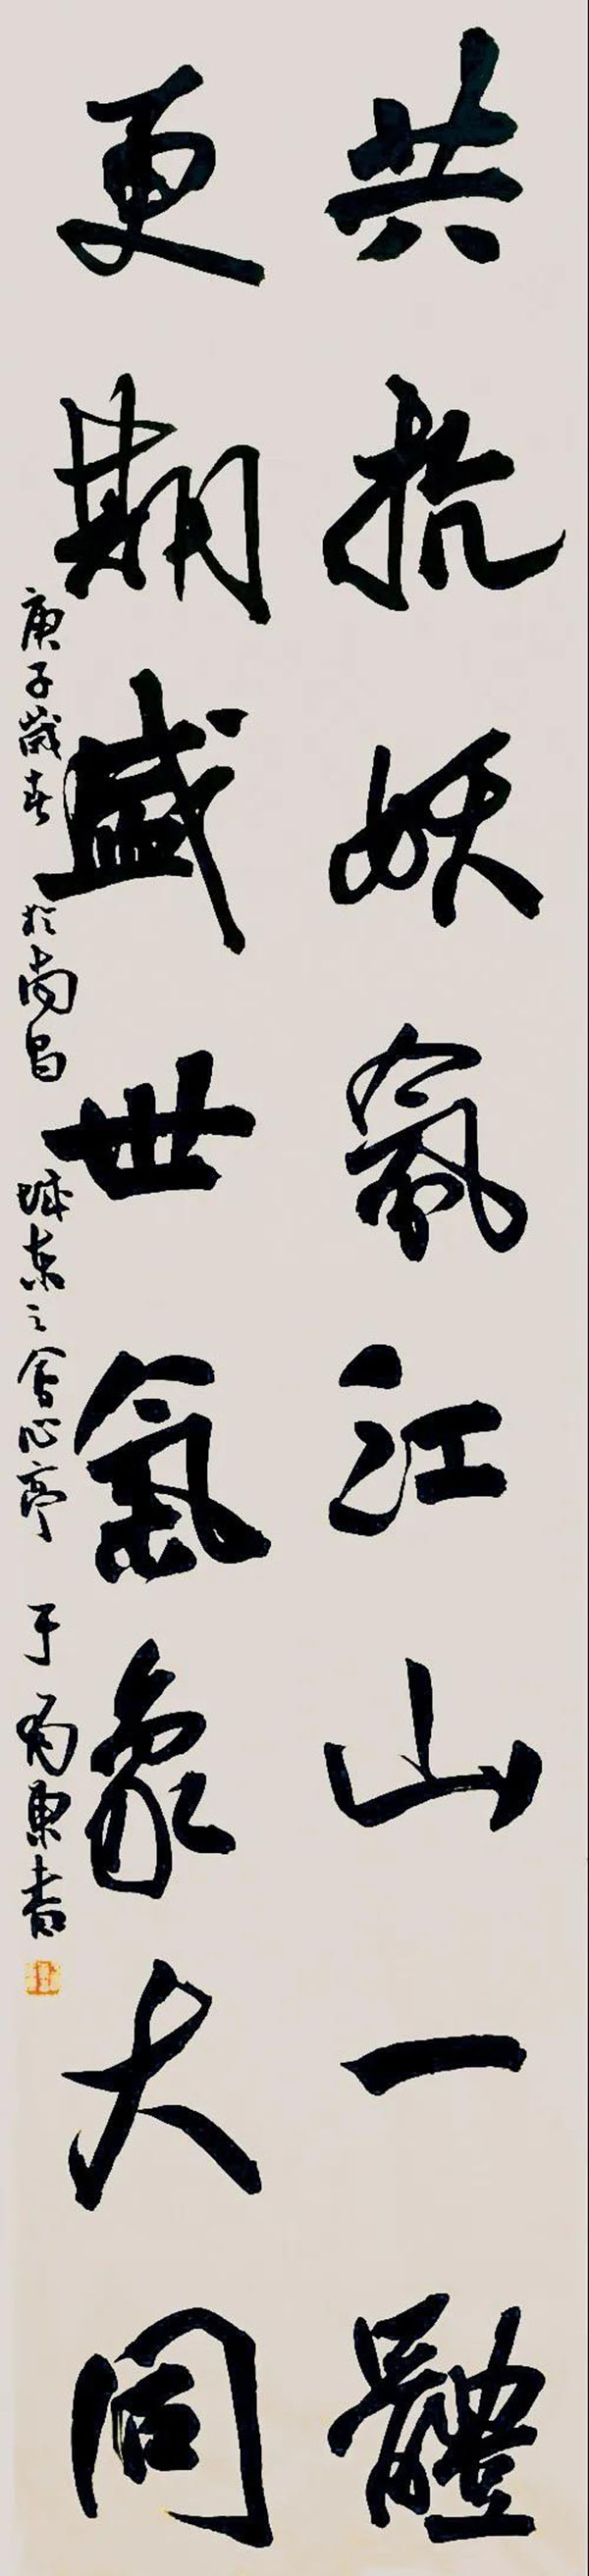 共抗妖氛江山一體
更期盛世氣象大同
庚子歲春 於南昌 城東之會心亭 于為東書